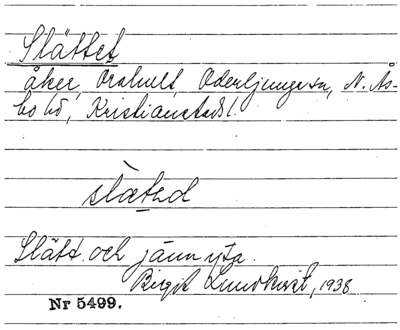 Slättet
åker, Orahult, Oderljunga sn, N. Ås-
bo hd, Kristianstads l.
slætəd
Slätt och jämn yta.
Birgit Lundkvist, 1938
Nr 5499.